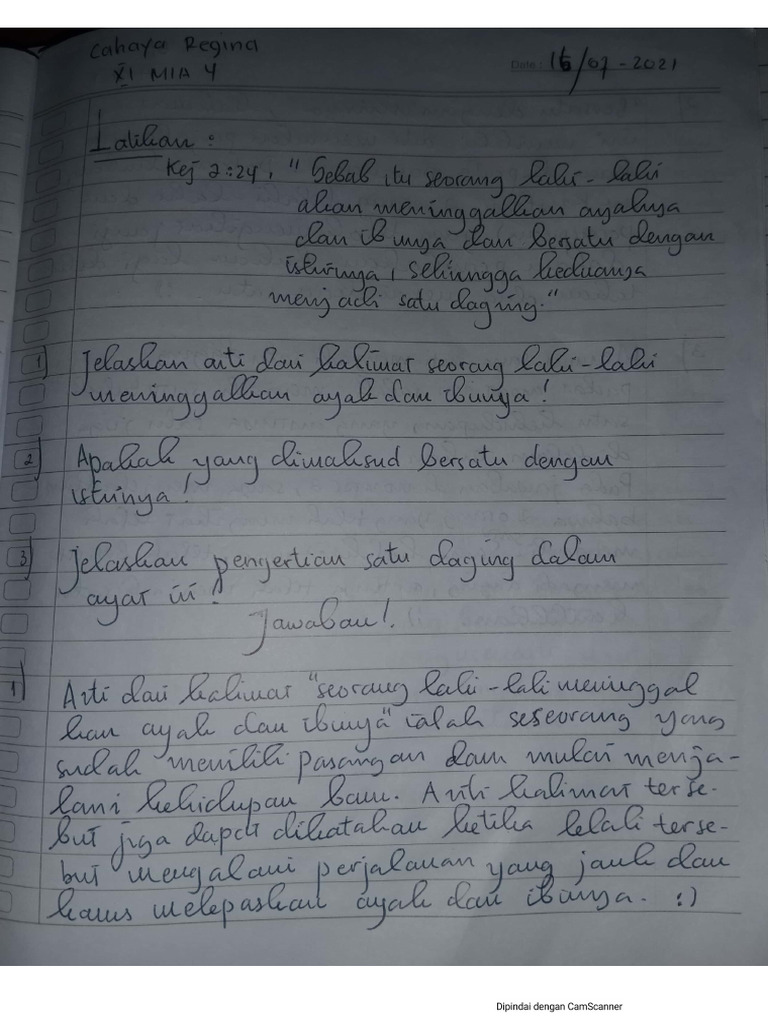 Cahaya Regina
XI MIA 4
Date : 16/07-2021
Latihan :
Kej 2:24, "Sebab itu seorang laki-laki
akan meninggalkan ayahnya
dan ibunya dan bersatu dengan
istrinya, sehingga keduanya
menjadi satu daging."
1) Jelaskan arti dari kalimat seorang laki-laki
meninggalkan ayah dan ibunya!
2) Apakah yang dimaksud bersatu dengan
istrinya!
3) Jelaskan pengertian satu daging dalam
ayat ini!
Jawaban!.
1) Arti dari kalimat "seorang laki-laki meninggal
kan ayah dan ibunya" ialah seseorang yang
sudah memiliki pasangan dan mulai menja-
lani kehidupan baru. Arti kalimat terse-
but juga dapat dikatakan ketika lelaki terse-
but mengalami perjalanan yang jauh dan
harus melepaskan ayah dan ibunya. :)
Dipindai dengan CamScanner